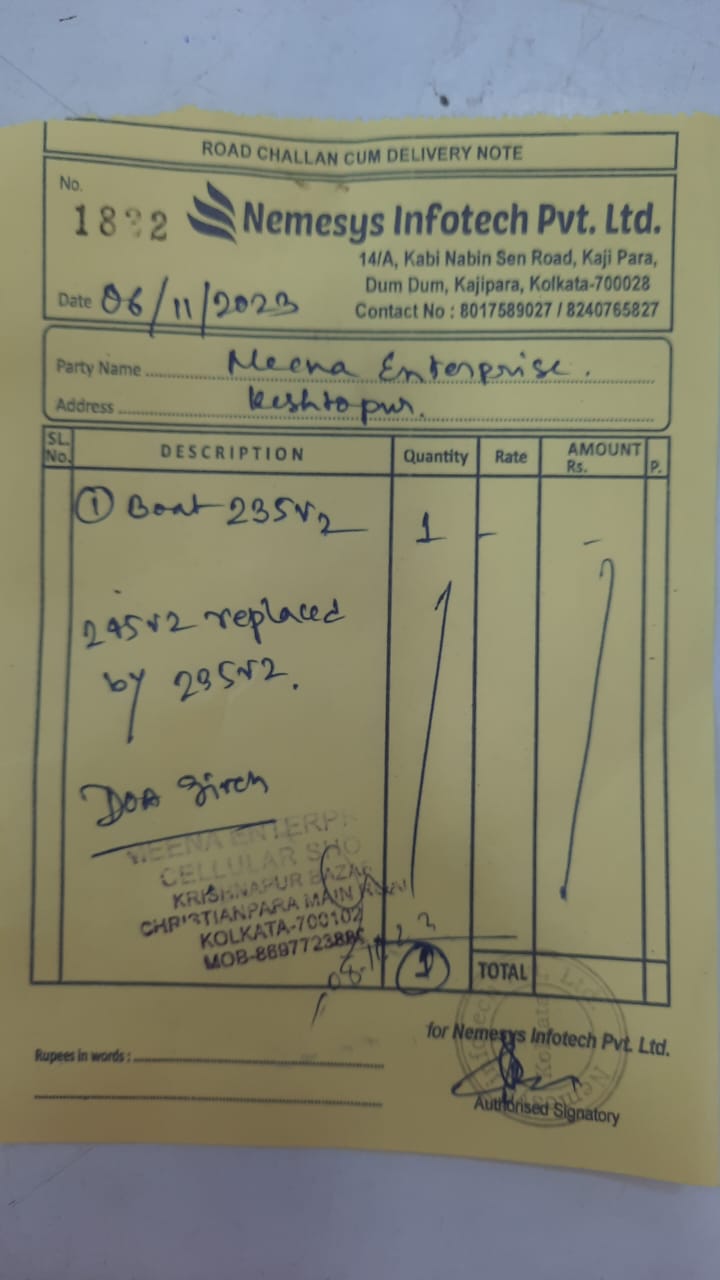 ROAD CHALLAN CUM DELIVERY NOTE
No.
Nemesys Infotech Pvt. Ltd.
14/A, Kabi Nabin Sen Road, Kaji Para,
Dum Dum, Kajipara, Kolkata-700028
Contact No : 8017589027 / 8240765827
Date 06/11/2023
Party Name Neena Enterprise.
Address Keshtopur.
SL. No. DESCRIPTION Quantity Rate AMOUNT Rs. P.
① Boat 235v2 1 - -
245v2 replaced
by 235v2.
DOA
NEENA ENTERPR
CELLULAR SHO
KRISHNAPUR BAZAR
CHRISTIANPARA MAIN ROAD
KOLKATA-700102
1 TOTAL
for Nemesys Infotech Pvt. Ltd.
Rupees in words :
Authorised Signatory